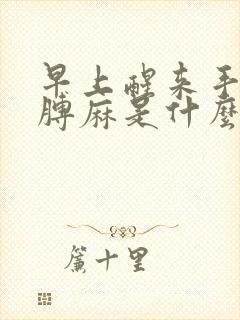 早上醒来手
膊麻是什麼
簾十里